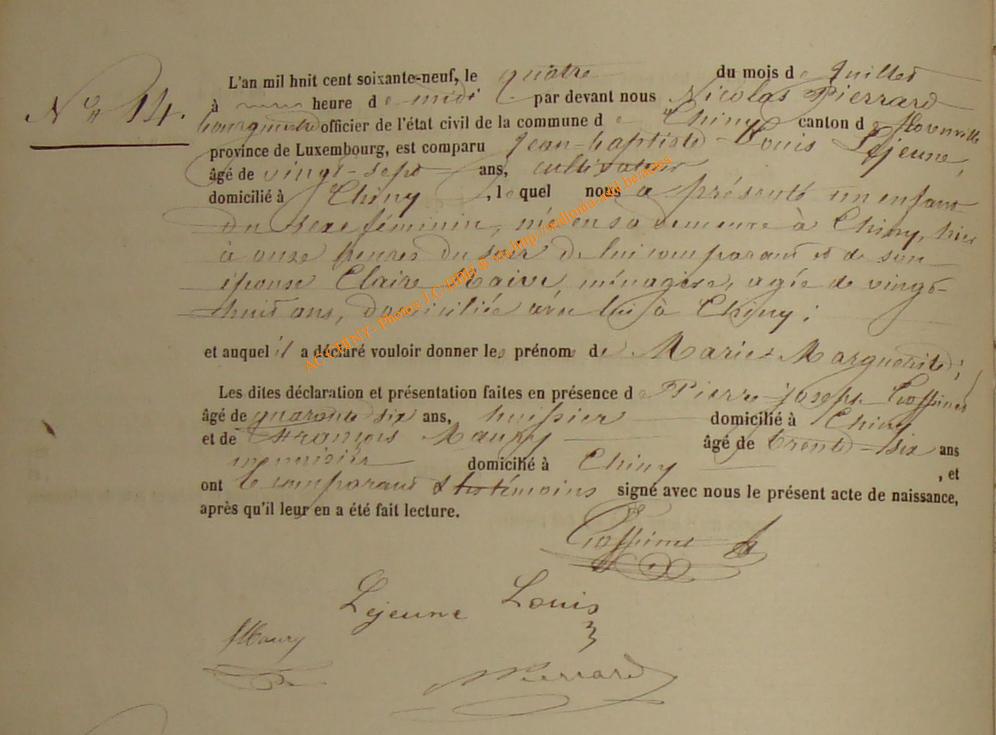 N° 14.
L'an mil huit cent soixante-neuf, le quatre du mois de Juillet
à heure de midi par devant nous Nicolas Pierrard
bourgmestre officier de l'état civil de la commune de Chiny canton de Florenville
province de Luxembourg, est comparu Jean-baptiste-Louis Lejeune,
âgé de vingt-sept ans, cultivateur
domicilié à Chiny, lequel nous a présenté un enfant
du sexe féminin, né en sa demeure à Chiny, hier
à onze heures du soir de lui comparant et de son
épouse Claire ménagère, agée de vingt-
huit ans, domiciliée avec lui à Chiny;
et auquel il a déclaré vouloir donner les prénoms de Marie-Marguerite;
Les dites déclaration et présentation faites en présence de Pierre-joseph
âgé de quarante six ans, huissier domicilié à Chiny
et de François Maury âgé de trente-six ans
menuisier domicilié à Chiny, et
ont le comparant & les témoins signé avec nous le présent acte de naissance,
après qu'il leur en a été fait lecture.
Lejeune Louis
Maury
Pierrard